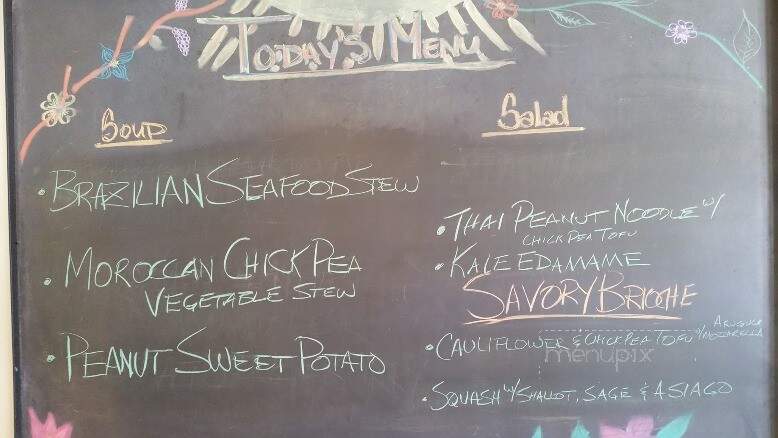 TODAY'S MENU
SOUP
• BRAZILIAN SEAFOOD STEW
• MOROCCAN CHICK PEA
VEGETABLE STEW
• PEANUT SWEET POTATO
Salad
• THAI PEANUT NOODLE W/
CHICK PEA TOFU
• KALE EDAMAME
SAVORY BRIOCHE
• CAULIFLOWER & CHICK PEA TOFU W/ ARUGULA
MOZZARELLA
menupix
• SQUASH W/ SHALLOT, SAGE & ASIAGO